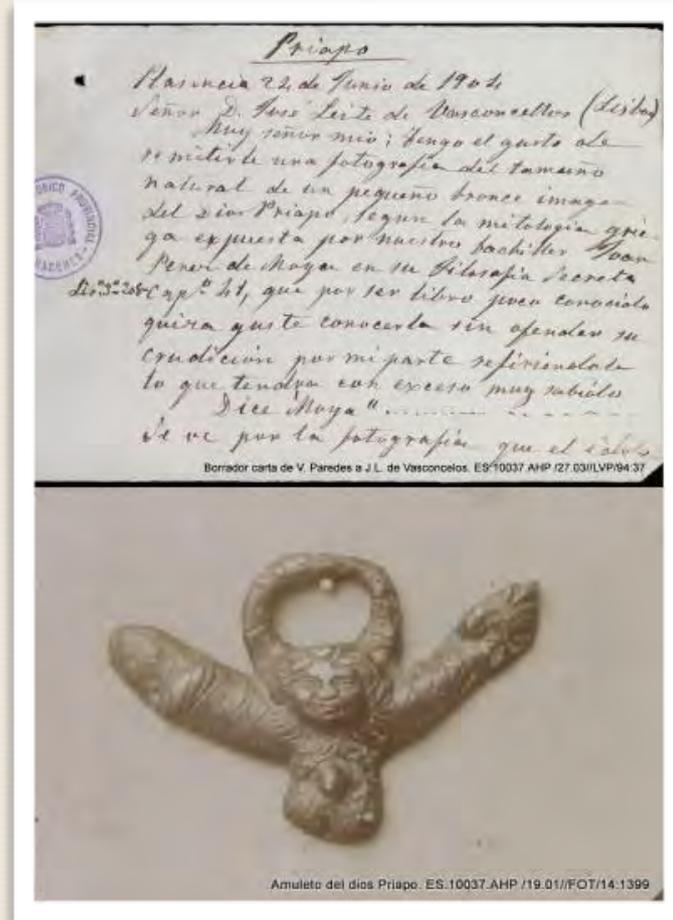 Priapo
Plasencia 22 de Junio de 1904
Señor D. José Leite de Vasconcellos (Lisboa)
Muy señor mio: Tengo el gusto de
remitirle una fotografia del tamaño
natural de un pequeño bronce imagen
del Dios Priapo, segun la mitologia grie-
ga expuesta por nuestro bachiller Juan
Perez de Moya en su Filosofia Secreta
Capº 41, que por ser libro poco conocido
quiza guste conocerla sin ofender su
erudición por mi parte refiriendole
lo que tendra con exceso muy sabido
Dice Moya "
Se ve por la fotografia que el idolo
Borrador carta de V. Paredes a J.L. de Vasconcelos. ES.10037.AHP /27.03//LVP/94:37
Amuleto del dios Priapo. ES.10037.AHP /19.01//FOT/14:1399